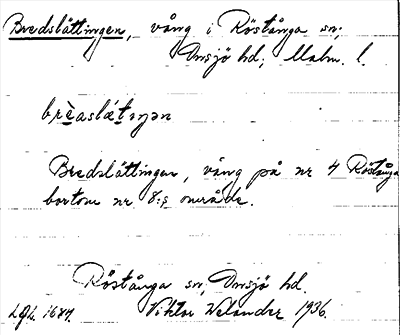 Bredslättingen, vång i Röstånga sn;
Onsjö hd; Malm. l.
brèaslǽtıŋən
Bredslättingen, vång på nr 4 Röstånga
bortom nr 8:s område.
Röstånga sn, Onsjö hd.
Viktor Welander 1936.